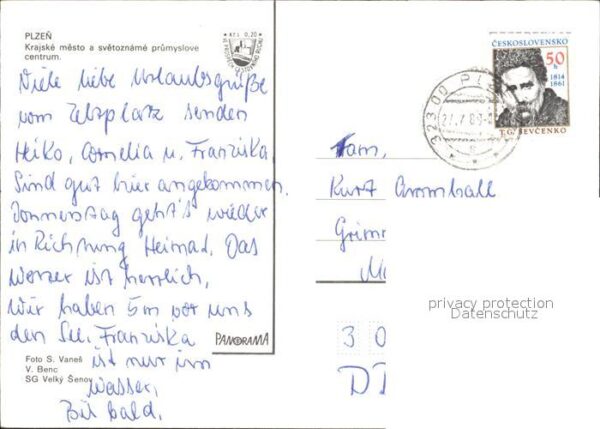 PLZEŇ
Krajské město a světoznámé průmyslove
centrum.
Kčs 0,20
Viele liebe Urlaubsgrüße
vom Zeltplatz senden
Heiko, Cornelia u. Franziska.
Sind gut hier angekommen.
Donnerstag geht's wieder
in Richtung Heimad. Das
Wasser ist herrlich,
wir haben 5m vor uns
den See. Franziska
ist nur im
Wasser.
Bis bald.
Foto S. Vaneš
V. Benc
SG Velký Šenov
PANORAMA
ČESKOSLOVENSKO
50
h
1814
1861
T.G. ŠEVČENKO
323 00 PL
27.7.89
Fam.
Kurt
Grimm
privacy protection
Datenschutz
3 0